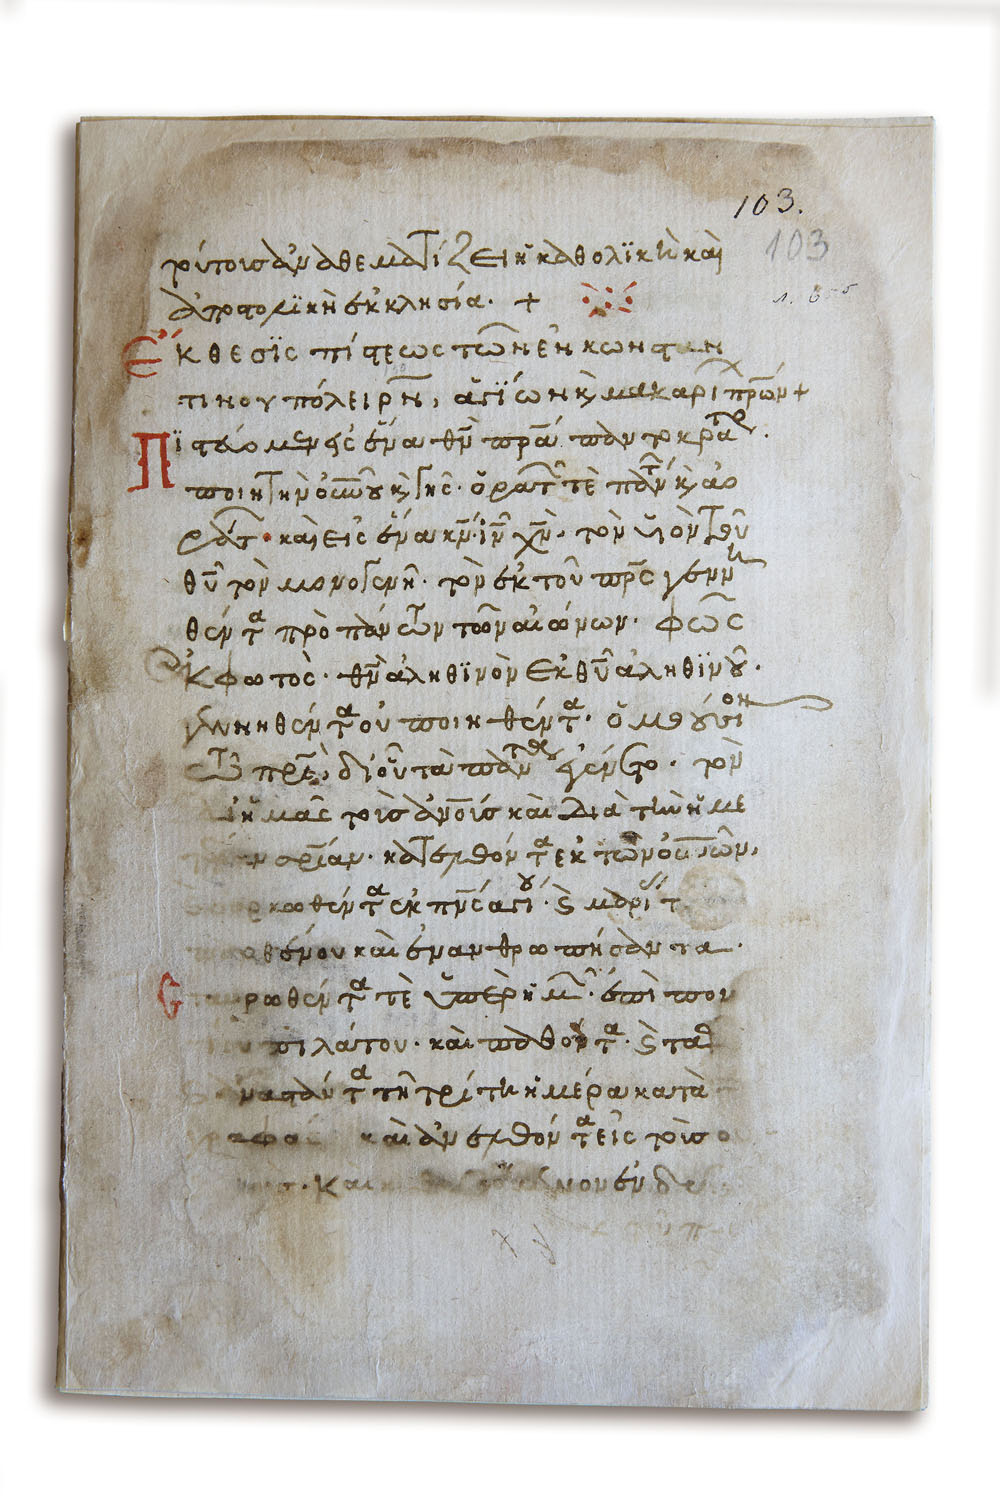 103.
103
τούτους ἀναθεματίζει ἡ καθολϊκὴ καὶ
ἀποστολϊκὴ ἐκκλησία. +
Ἔκθεσϊς πίστεως τῶν ἐν κωνσταν
τινουπόλει ρν, ἁγΐων κ(αὶ) μακαρί πρων +
Πϊστεύομεν εἰς ἕνα θν πρα παντοκρα τρ.
ποιητὴν οὐνου κ(αὶ) γῆς. ὁρατ τὲ πάντ κ(αὶ) ἀο
ράτ. καὶ εἰς ἕνα κν ιν χν. τὸν υἱὸν τοῦ
θυ τὸν μονογενῆ. τὸν ἐκ του πρς γεννη
θέντα πρὸ πάντων τῶν αἰώνων. φῶς
ἐκ φωτὸς. θν ἀληθϊνὸν ἐκ θυ ἀληθϊνοῦ.
γεννηθέντα οὐ ποιηθέντα. ὁμοούσιον
τῶ πρϊ, δι οὗ τὰ πάντα ἐγένετο. τὸν
δι ἡμᾶς τοὺς ἀνους καὶ διὰ τὴν ἡμε
τέραν σρίαν. κατελθόντα ἐκ τῶν οὐνων,
σαρκωθέντα ἐκ πνς ἁγίου. κ(αὶ) μαρί τ
παρθένου καὶ ἐνανθρωπήσαντα.
Σταυρωθέντα τὲ ὑπὲρ ἡμ. ἐπὶ πον
τίου πιλάτου. καὶ παθόντα. κ(αὶ) ταφ
ἀναστάντα τῆ τρίτη ἡμέρα κατὰ
γραφας καὶ ἀνελθόντα εἰς τοὺς ο
καὶ καθεζόμενον ἐν δε